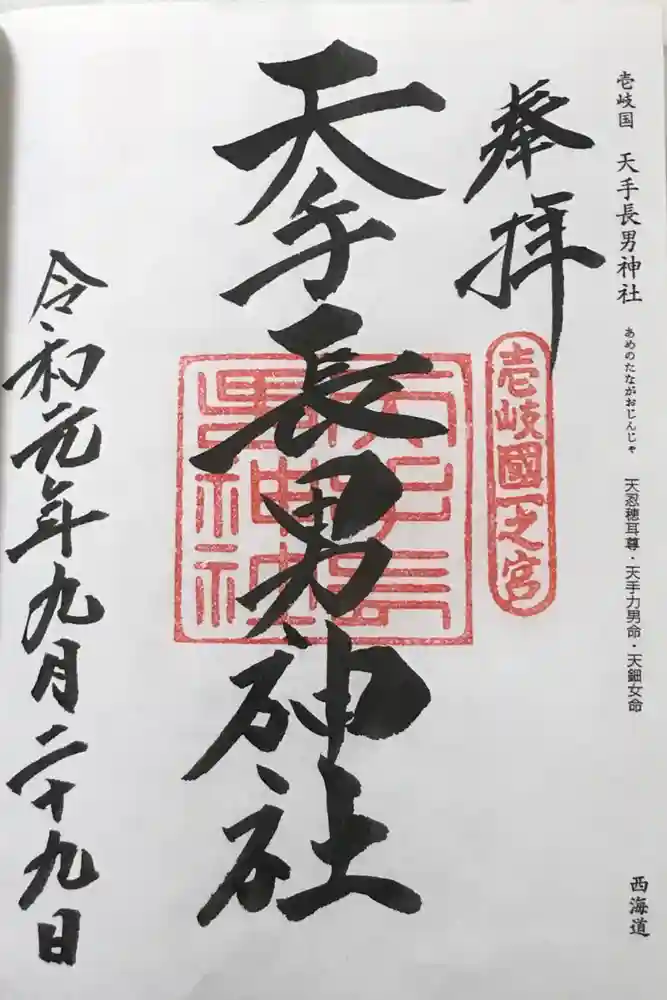 壱岐国 天手長男神社 あめのたながおじんじゃ 天忍穂耳尊・天手力男命・天鈿女命 西海道
奉拝
壱岐國一之宮
天手長男神社
令和元年九月二十九日